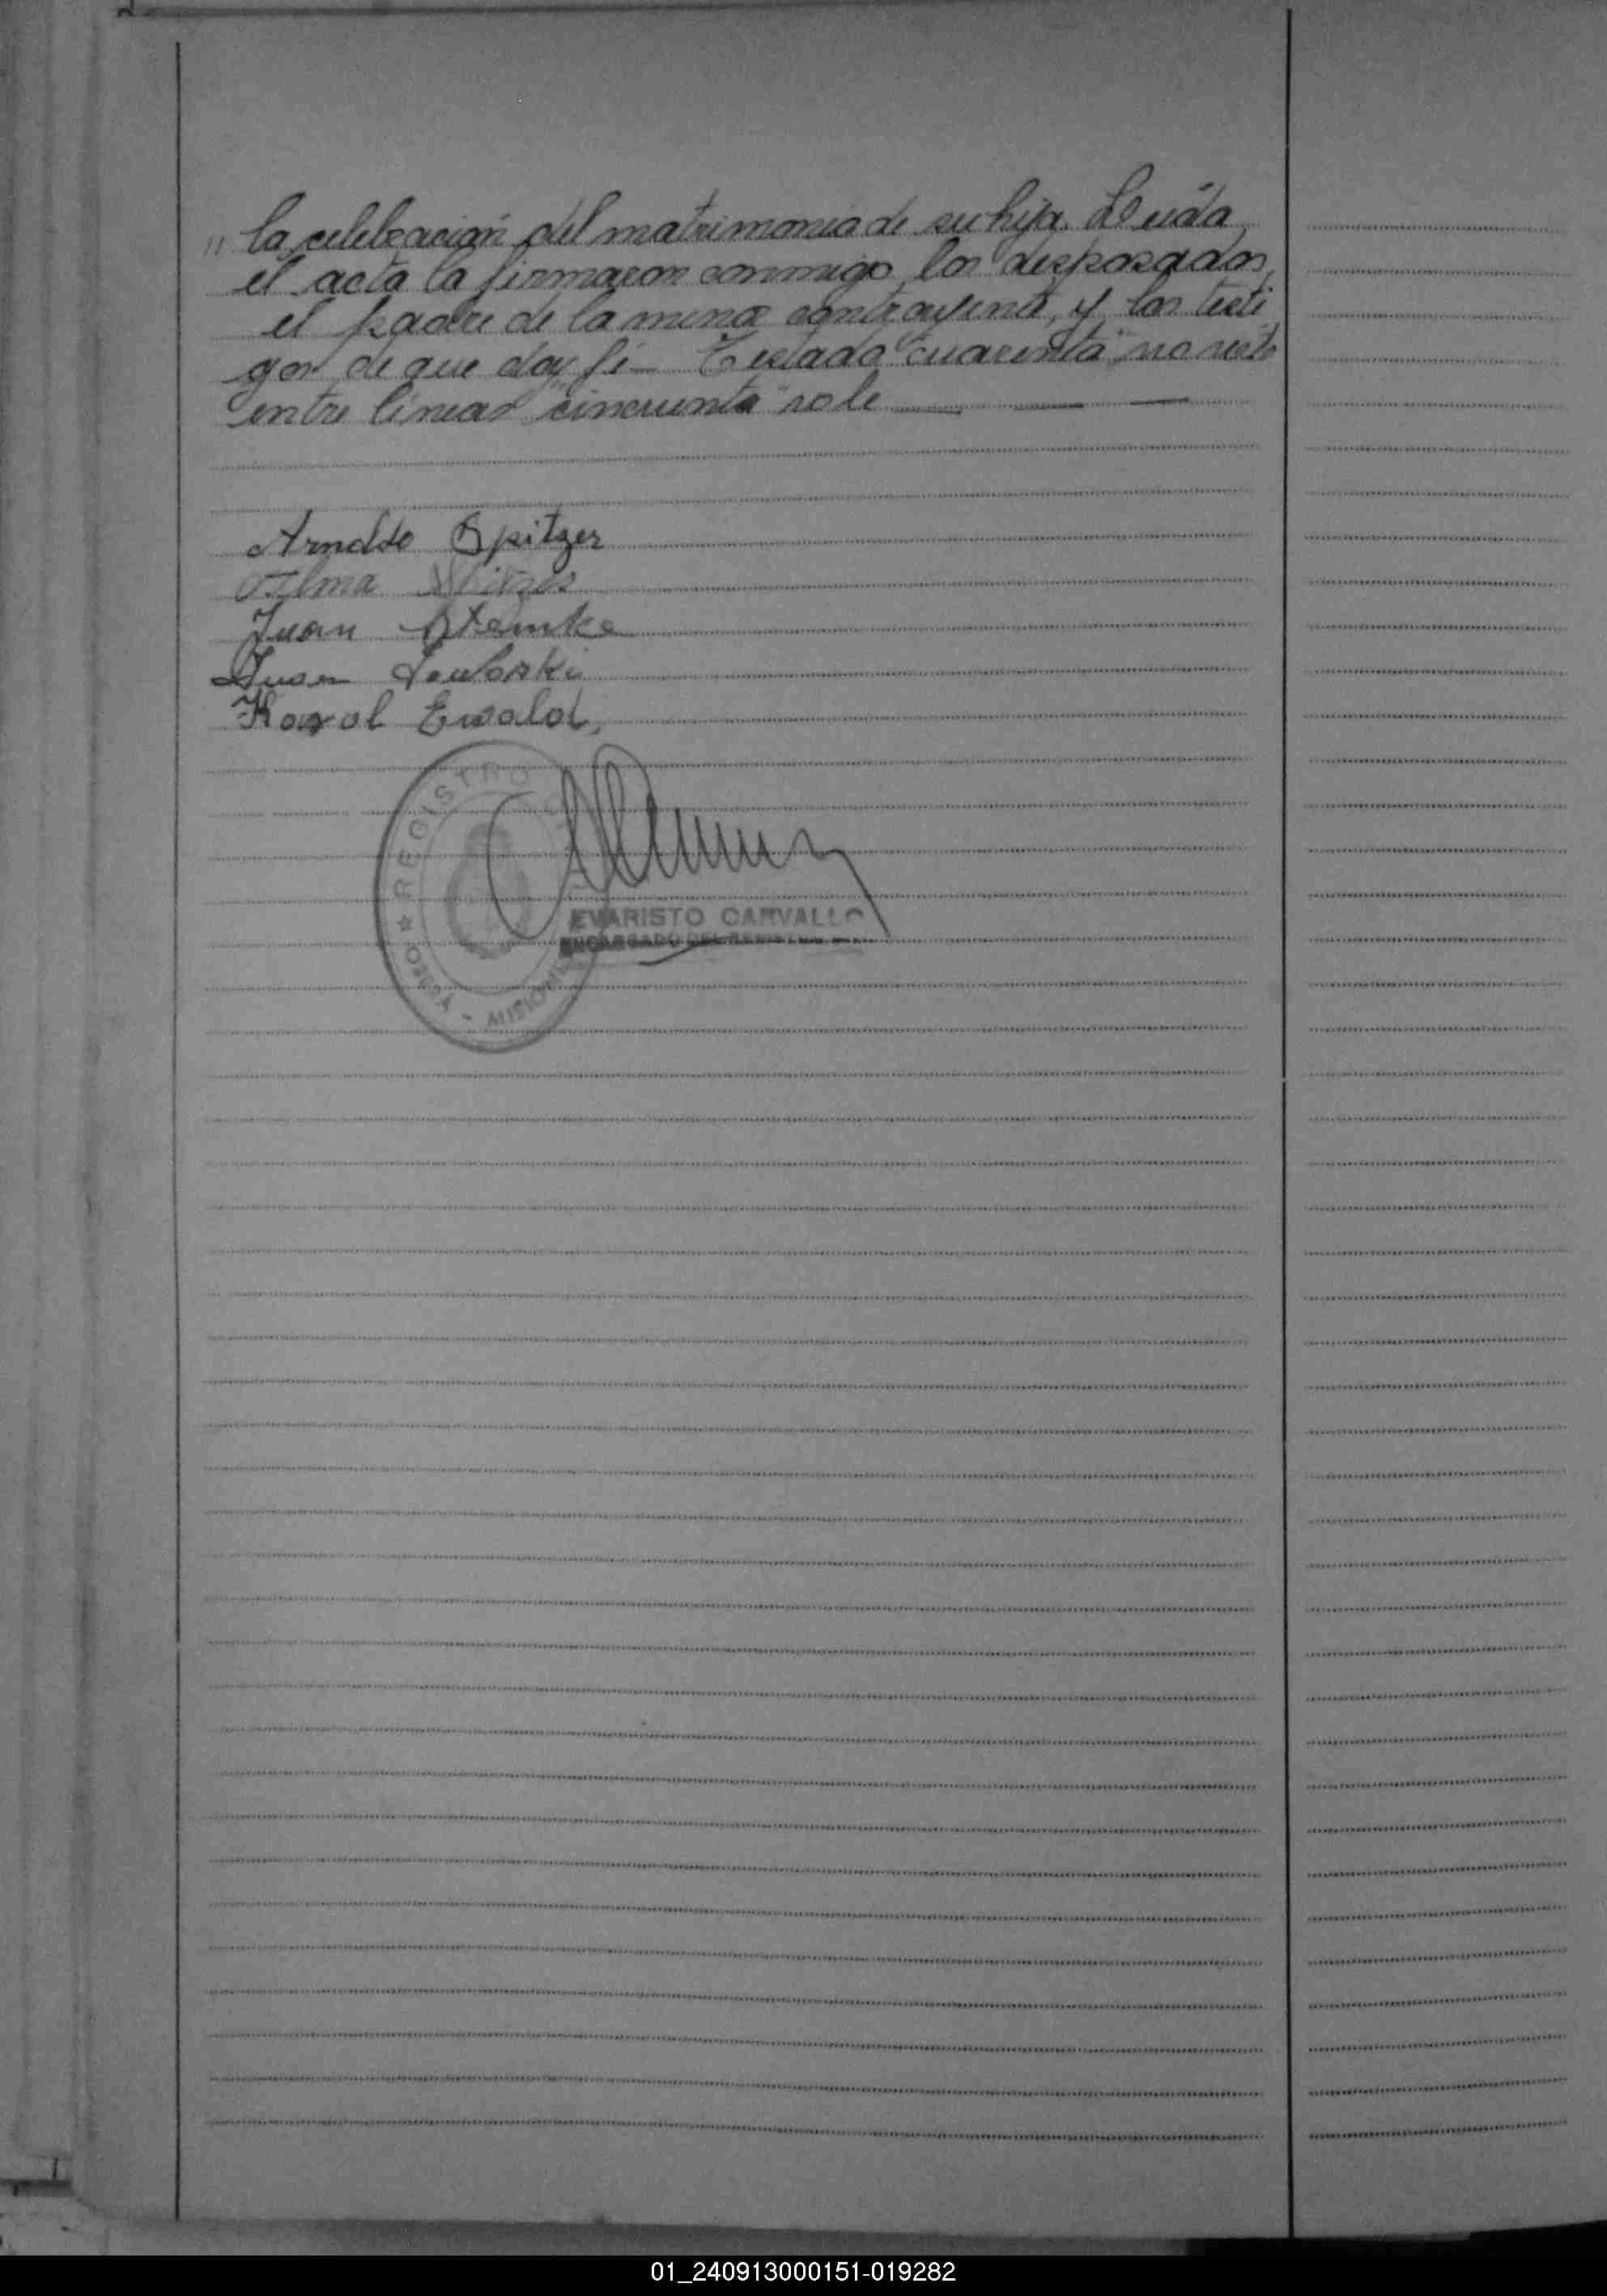 " la celebración del matrimonio de su hija. Leida
el acta la firmaron conmigo, los desposados,
el padre de la menor contrayente, y los testi
gos de que doy fé – Testado "cuarenta" no vale
entre lineas "cincuenta" vale
Arnoldo Spitzer
Juan
Juan
Karol Ewald,
REGISTRO
MISIONES
EVARISTO CARVALLO
ENCARGADO DEL REGISTRO
01_240913000151-019282